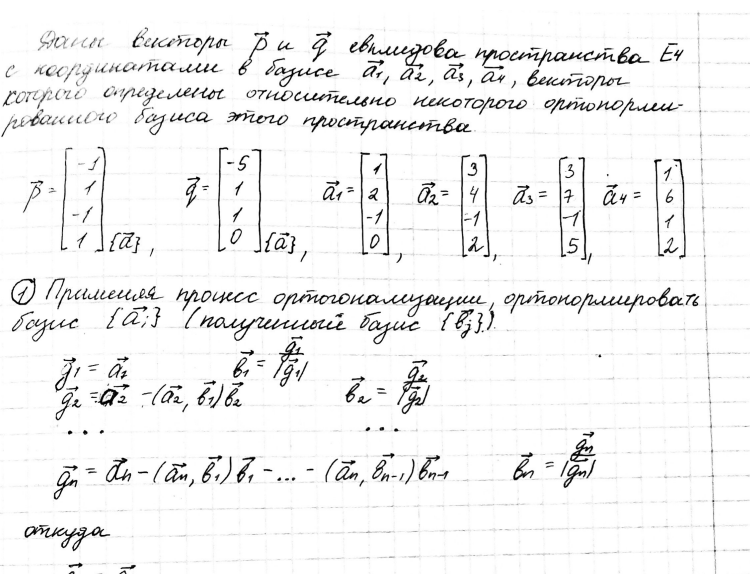 Даны векторы p⃗ и q⃗ евклидова пространства E4
с координатами в базисе a⃗1, a⃗2, a⃗3, a⃗4, векторы
которого определены относительно некоторого ортонорми-
рованного базиса этого пространства
p⃗ = [-1 1 -1 1]{a⃗}, q⃗ = [-5 1 1 0]{a⃗}, a⃗1 = [1 2 -1 0], a⃗2 = [3 4 -1 2], a⃗3 = [3 7 -1 5], a⃗4 = [1 6 1 2]
① Применяя процесс ортогонализации, ортонормировать
базис {a⃗i} (полученный базис {b⃗j}).
g⃗1 = a⃗1 b⃗1 = g⃗1/|g⃗1|
g⃗2 = a⃗2 - (a⃗2, b⃗1)b⃗2 b⃗2 = g⃗2/|g⃗2|
... ...
g⃗n = a⃗n - (a⃗n, b⃗1)b⃗1 - ... - (a⃗n, b⃗n-1)b⃗n-1 b⃗n = g⃗n/|g⃗n|
откуда